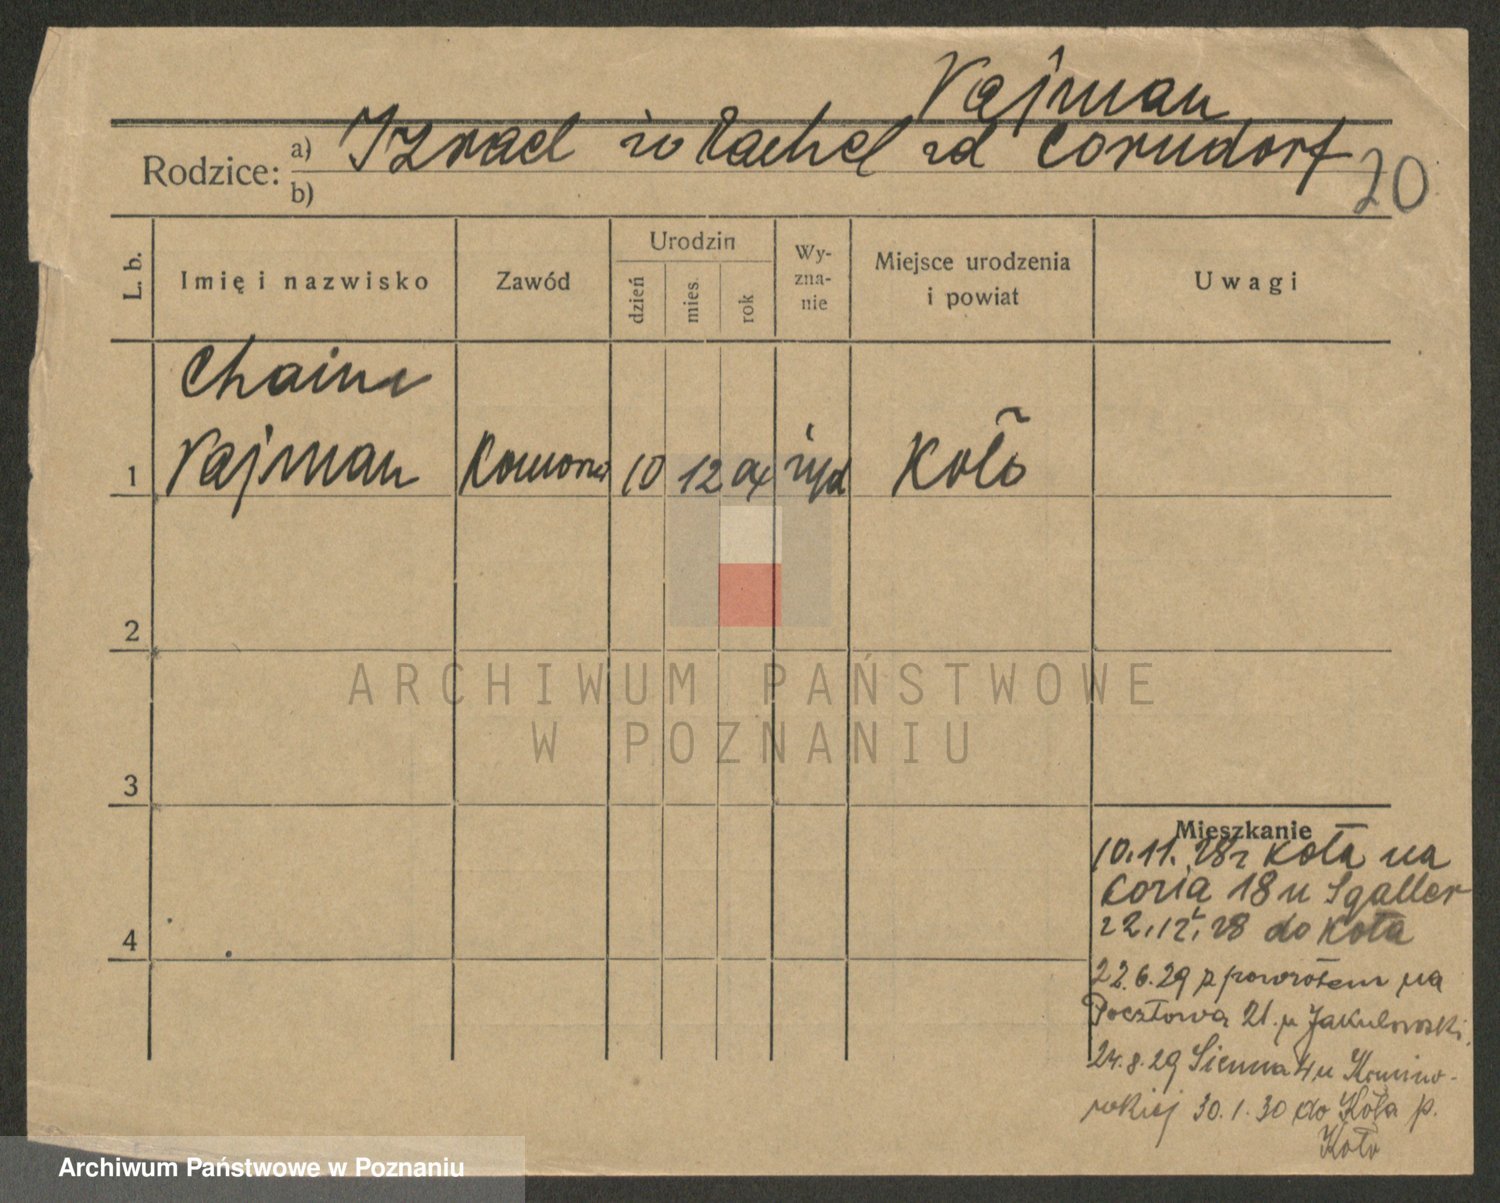 Vajman
Rodzice: a) Izrael i Rachel zd Corndorf
b)
20
L. b.
Imię i nazwisko
Zawód
Urodzin
dzień
mies.
rok
Wy-
zna-
nie
Miejsce urodzenia
i powiat
Uwagi
Chaim
1 Vajman 10 12 04 żyd Koło
2
3
4
Mieszkanie
10.11.28r Koła na
18 u Sgaller
22.12.28 do Koła
22.6.29 z powrotem na
Pocztowa 21. u Jakubowski
24.8.29 Sienna 4 u
30.1.30 do Koła p.
Koło
ARCHIWUM PAŃSTWOWE
W POZNANIU
Archiwum Państwowe w Poznaniu